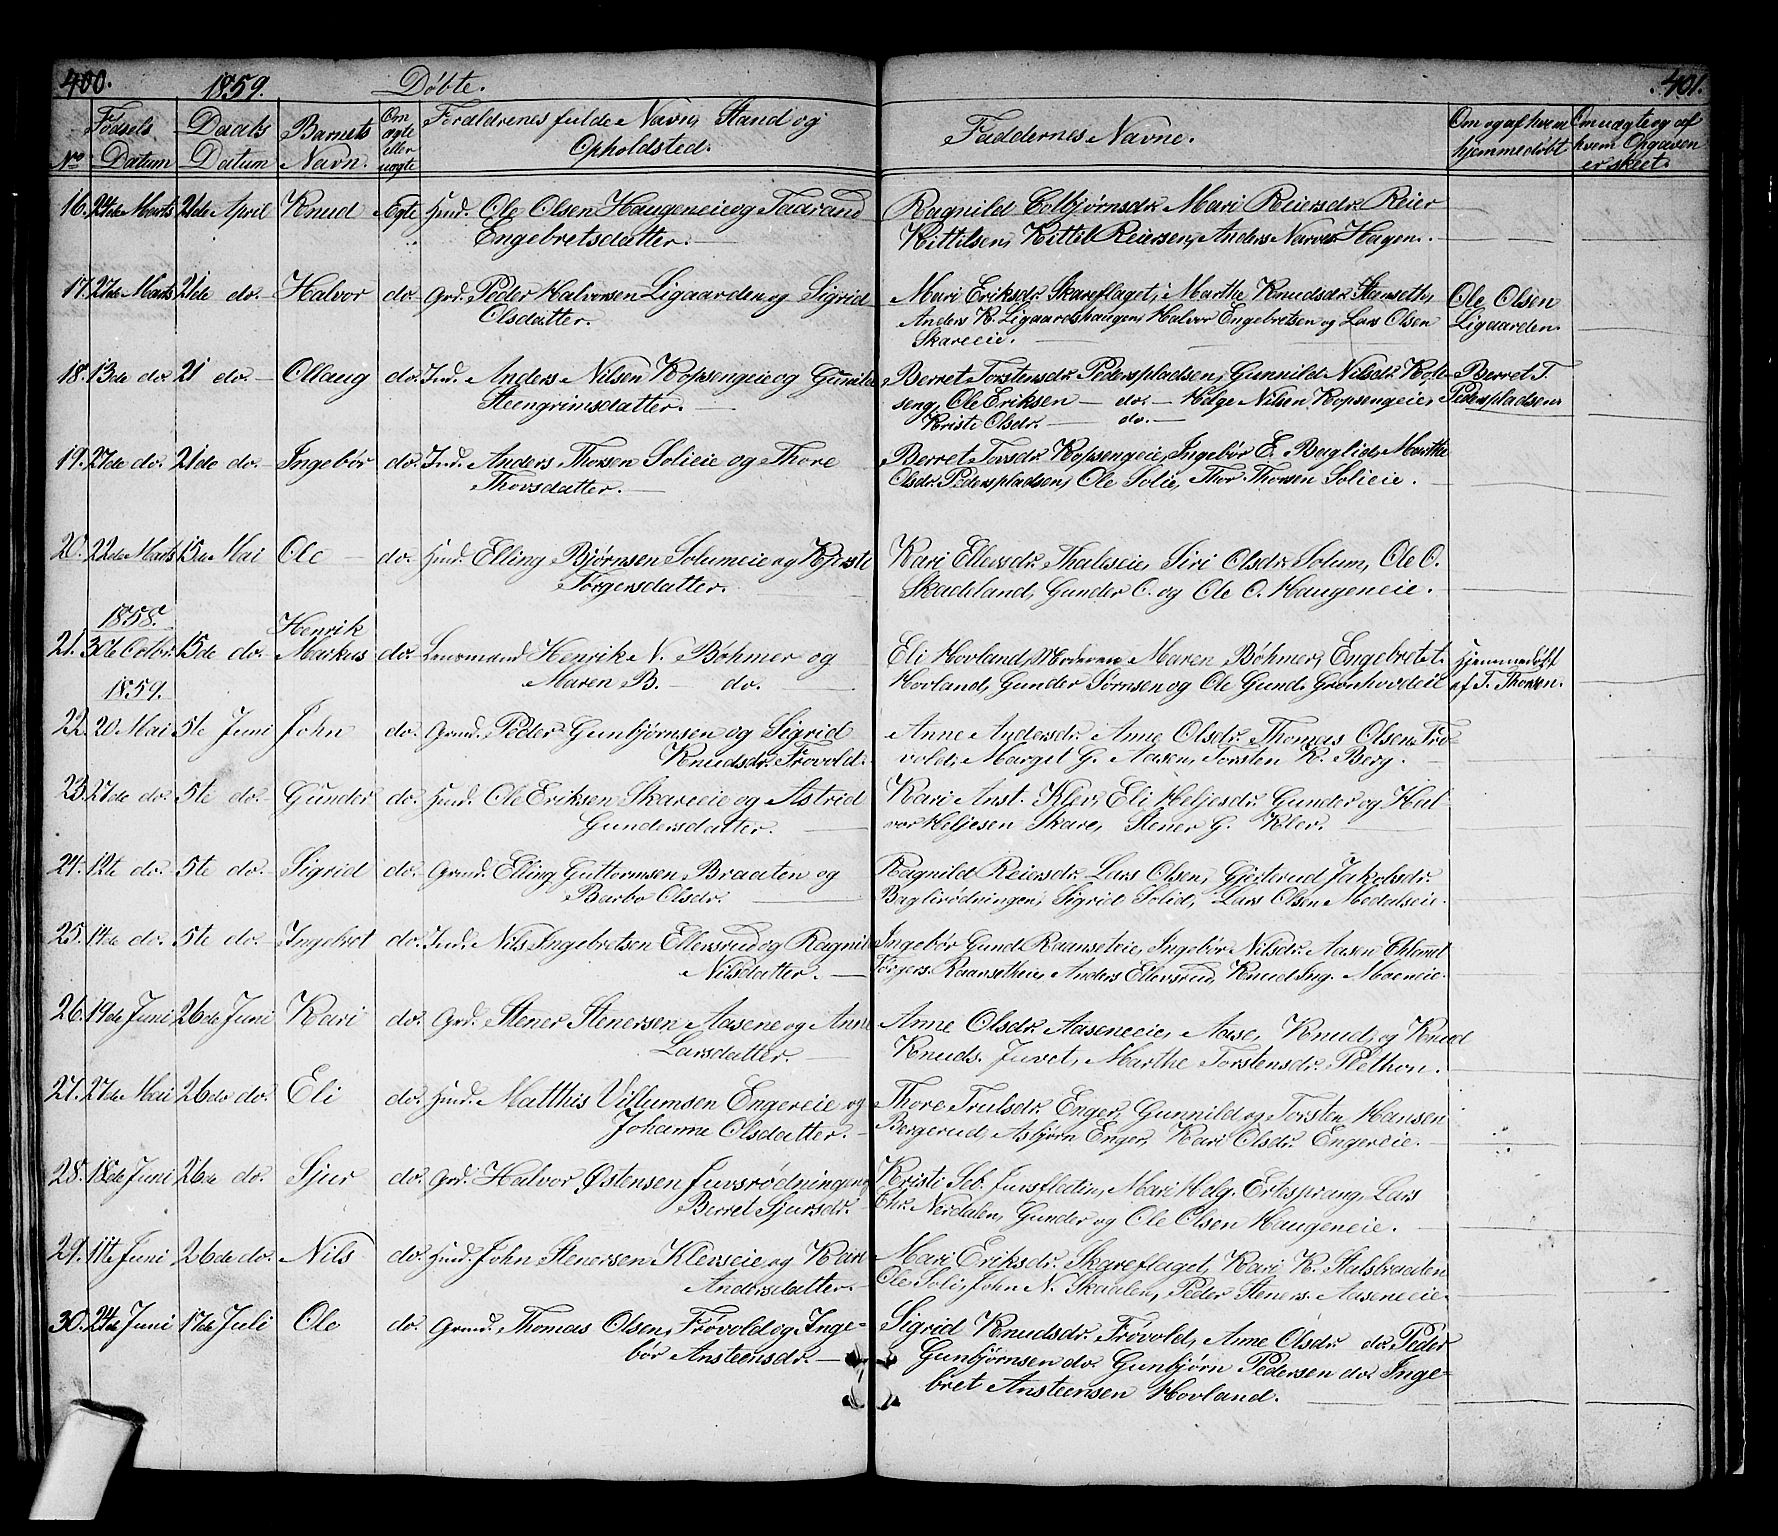 400. 1859. Døbte. 401.
No Fødsels Datum Daabs Datum Barnets Navn. Om ægte eller uægte Forældrenes fulde Navn, Stand og Opholdsted. Faddernes Navne. Om og af hvem hjemmedøbt Om uægte og af hvem Opgaven er skeet.
16. 24de Marts 21de April Knud Ægte Huusm. Ole Olsen Haugeneie og Taarand Ragnild Colbjørnsdr. Mari Reiersdr. Reier
Engebretsdatter. Kittilsen, Kittil Reiersen, Anders Narves. Hagen.
17. 27de Marts 21de do. Halvor do. Grd. Peder Halvorsen Ligaarden og Sigrid Mari Eriksdr. Skareflaget, Marthe Knudsdr. Stanseth, Ole Olsen
Olsdatter. Anders K. Ligaardshaugen, Halvor Engebretsen og Lars Olsen Ligaarden.
Skareeie.
18. 13de do. 21 do. Ollaug do. Ind. Anders Nilsen Kopsengeie og Gunild Berret Torstensdr. Pederspladsen, Gunnild Nilsdr. Kop- Berret T.
Steengrimsdatter. seng, Ole Eriksen do. Helge Nilsen Kopsengeie, Pederspladsen
Kristi Olsdr. do.
19. 27de do. 21de do. Ingebør do. Ind. Anders Thorsen Solieie og Thore Berret Torsdr. Kopsengeie, Ingebør E. Baglid, Marthe
Thovsdatter. Olsdr. Pederspladsen, Ole Solie, Thor Thorsen Solieie.
20. 22de Marts 15de Mai Ole do. Huusm. Elling Bjørnsen Solumeie og Kjersti Kari Ellensdr. Thalseie, Siri Olsdr. Solum, Ole O.
Torgersdatter. Skadeland, Gunder O. og Ole O. Haugeneie.
1858. Henrik
21. 30te Octbr. 15de do. Markus do. Lensmand Henrik N. Bøhmer og Eli Hovland, Moderen Maren Bøhmer, Engebret E. Hjemmedøbt
1859. Maren B. do. Hovland, Gunder Tørnsen og Ole Gund. Grønhovdeie af T. Thorsen.
22. 20 Mai 5te Juni John do. Grmd. Peder Gunbjørnsen og Sigrid Anne Andersdr. Anne Olsdr. Thomas Olsen Frø-
Knudsdr. Frøvold. vold, Margit G. Aasen, Torsten K. Berg.
23. 27de do. 5te do. Gunder do. Huusm. Ole Eriksen Skareeie og Astrid Kari Anst. Klev, Eli Heljesdr. Gunder og Hal-
Gundersdatter. vor Heljesen Skare, Stener G. Klev.
24. 12te do. 5te do. Sigrid do. Grmd. Elling Guttormsen Braaten og Ragnild Reiersdr. Lars Olsen, Gjertrud Jakobsdr.
Barbo Olsdr. Baglirødningen, Sigrid Solid, Lars Olsen Medalseie.
25. 14de do. 5te do. Ingebret do. Ind. Nils Ingebretsen Ellensrud og Ragnild Ingebør Gund. Raanseteie, Ingebør Nilsdr. Aasen
Nilsdatter. Torgers. Raansetheie, Anders Ellensrud, Knud Ing. Moeneie.
26. 19de Juni 26de Juni Kari do. Grd. Stener Stenersen Aasene og Anne Anne Olsdr. Aaseneeie, Aase, Knud, og Knud
Larsdatter. Knuds. Juvet, Marthe Torstensdr. Plethon.
27. 27de Mai 26de do. Eli do. Huusm. Matthis Villumsen Engereie og Thore Trulsdr. Enger, Gunnild og Torsten Hansen
Johanne Olsdatter. Bergerud, Asbjørn Enger, Kari Olsdr. Engereie.
28. 18de Juni 26de do. Sjur do. Grd. Halvor Østensen Juvsrødningen Kristi Seb. Juvsflatin, Mari Helg. Ertesprang, Lars
Berret Sjursdr. Chr. Nordalen, Gunder og Ole Olsen Haugeneie.
29. 11te Juni 26de do. Nils do. Huusm. John Stenersen Klevseie og Kari Mari Eriksdr. Skareflaget, Kari K. Stalsbraaden
Andersdatter. Ole Soli, John N. Skaalen, Peder Steners. Aaseneeie.
30. 24de Juni 17de Juli Ole do. Grmd. Thomas Olsen, Frøvold og Inge- Sigrid Knudsdr. Frøvold, Anne Olsdr. do. Peder
bør Ansteensdr. Gunbjørnsen do. Gunbjørn Pedersen do. Inge-
bret Ansteensen Hovland.